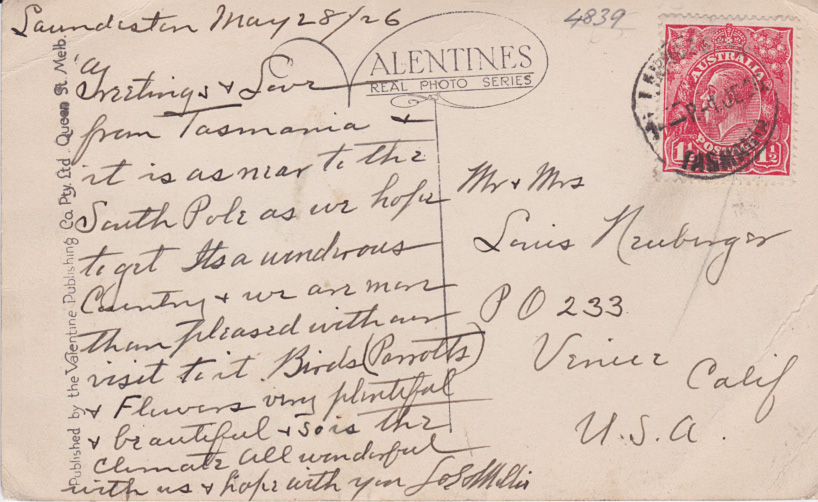 Launceston May 28/26
4839
VALENTINES
REAL PHOTO SERIES
Greetings & Love
from Tasmania &
it is as near to the
South Pole as we hope
to get Its a wonderous
Country & we are more
than pleased with our
visit to it. Birds (Parrotts)
& Flowers very plentiful
& beautiful & so is the
climate all wonderful
with us & hope with you
Mr & Mrs
Louis Neuberger
P O 233
Venice
Calif
U.S.A.
AUSTRALIA
POSTAGE
1½ 1½
TASMANIA
Published by the Valentine Publishing Co. Pty. Ltd. Queen St. Melb.